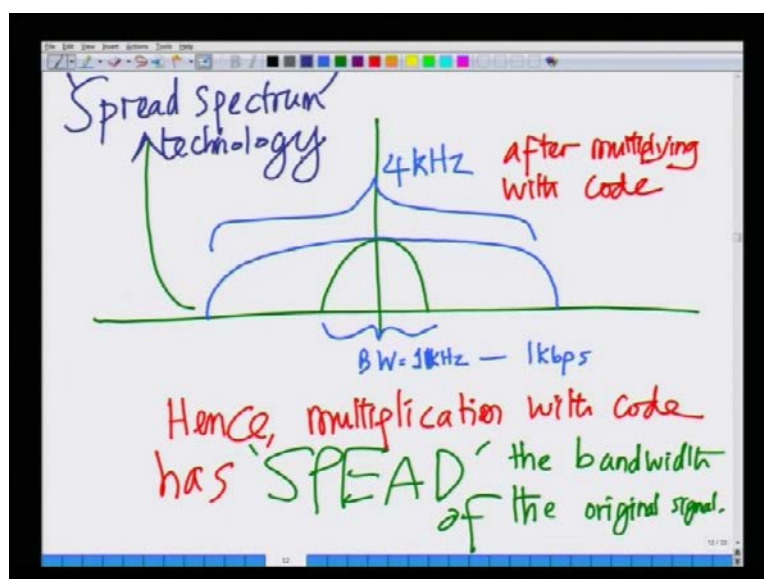 File Edit View Insert Actions Tools Help
'Spread Spectrum'
technology
4kHz
after multiplying
with code
BW=1kHz — 1kbps
Hence, multiplication with code
has 'SPEAD' the bandwidth
of the original signal.